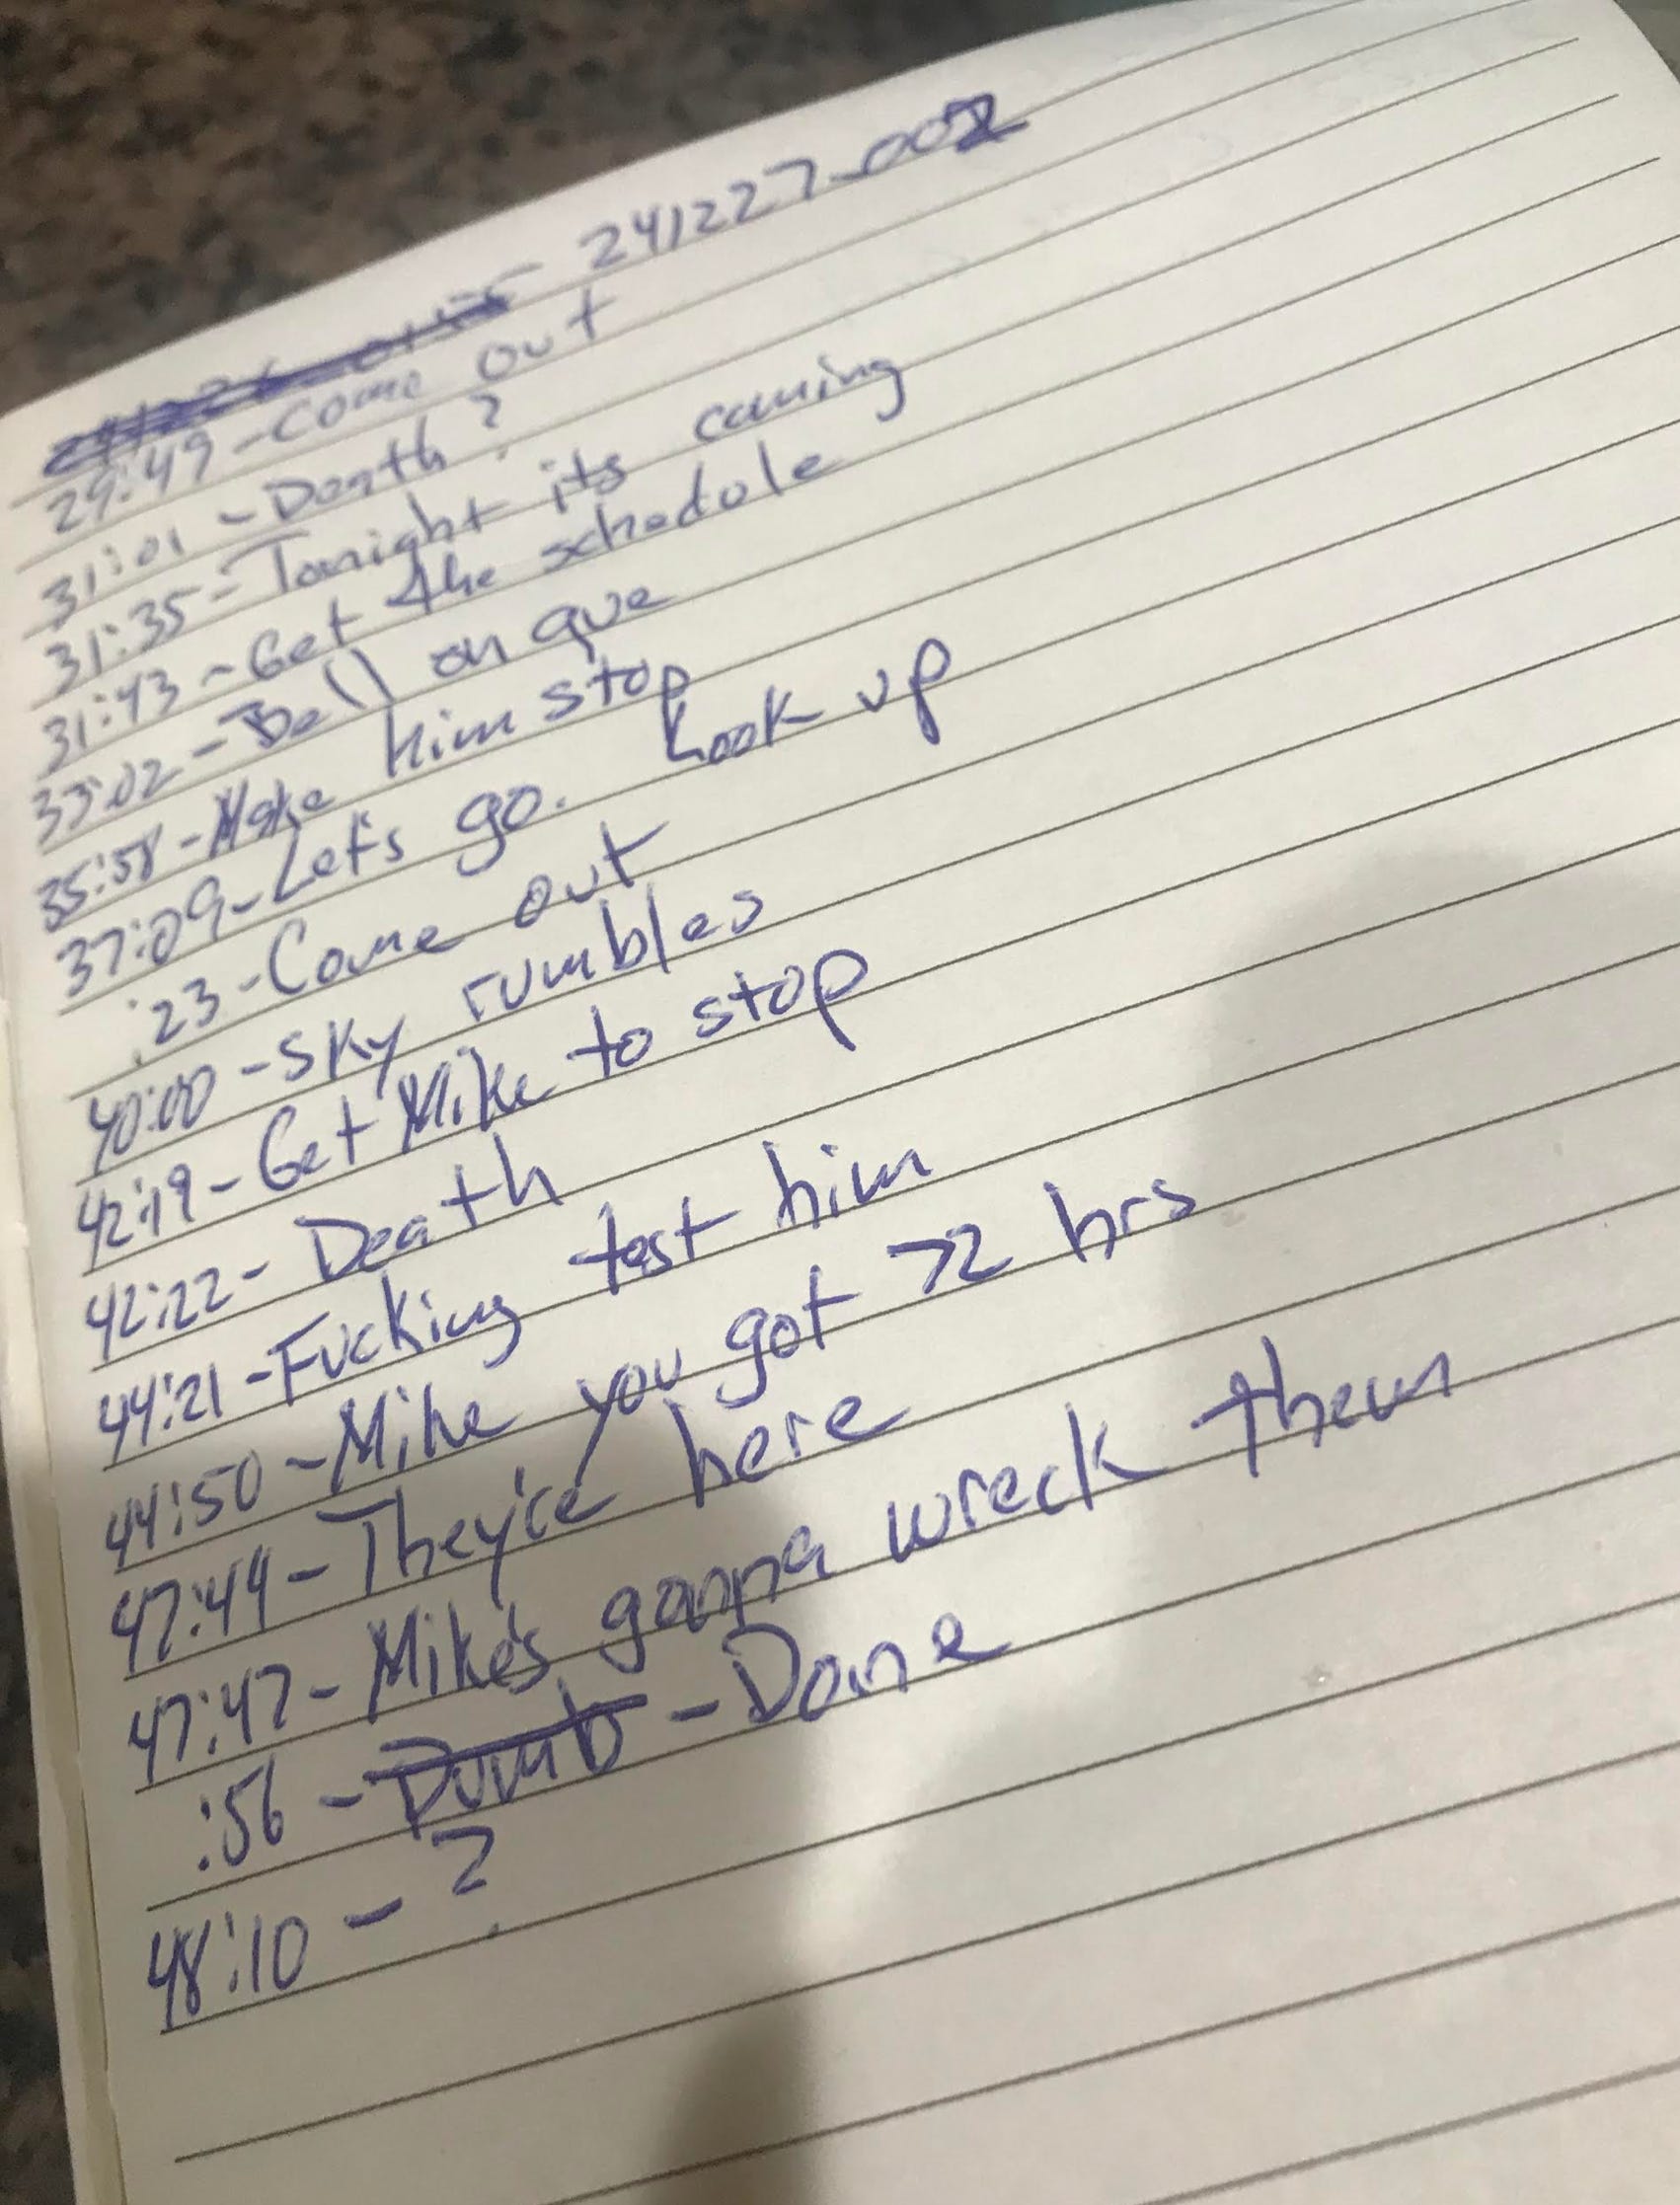 241227_002
29:49 - Come out
31:01 - Death?
31:35 - Tonight its coming
31:43 - Get the schedule
33:02 - Bell on que
35:58 - Make him stop
37:09 - Let's go. Look up
:23 - Come out
40:00 - Sky rumbles
42:19 - Get Mike to stop
42:22 - Death
44:21 - Fucking test him
44:50 - Mike you got 72 hrs
47:44 - They're here
47:47 - Mike's gonna wreck them
:56 - Dumb - Done
48:10 - ?